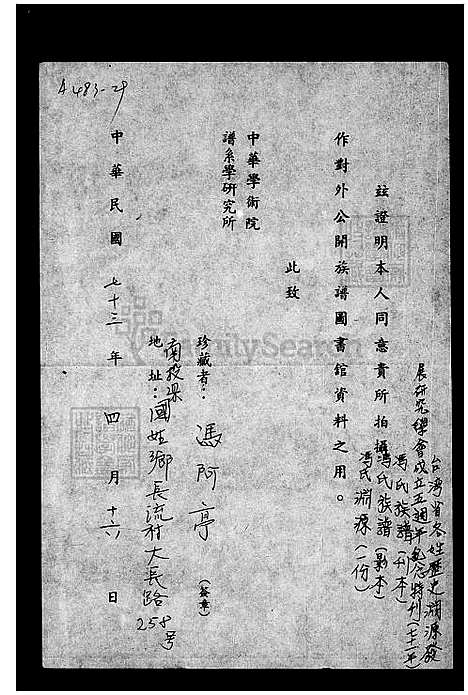 A483-29
茲證明本人同意貴所拍攝
台灣省各姓歷史淵源發
展研究學會成立五週年紀念特刊(七二年)
馮氏族譜(刊本)
馮氏族譜(影本)
馮氏淵源(一份)
作對外公開族譜圖書館資料之用。
此致
中華學術院
譜系學研究所
珍藏者：馮阿亭(簽章)
地址：南投縣國姓鄉長流村大長路258號
中華民國七十三年四月十六日